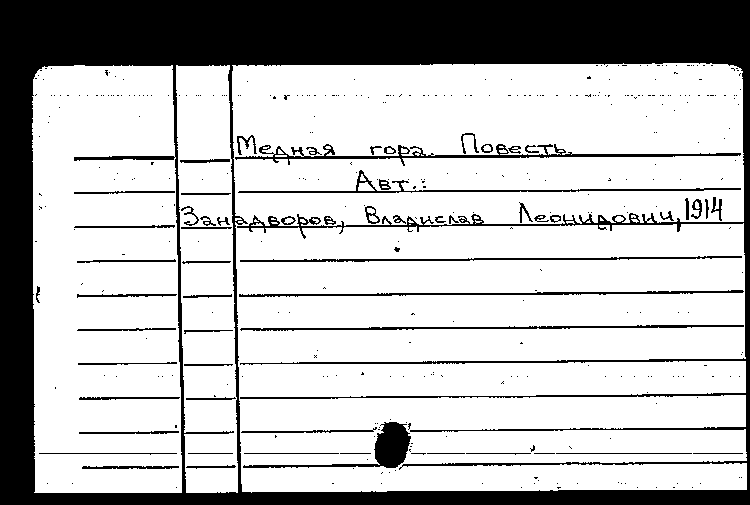 Медная гора. Повесть.
Авт.:
Занадворов, Владислав Леонидович, 1914